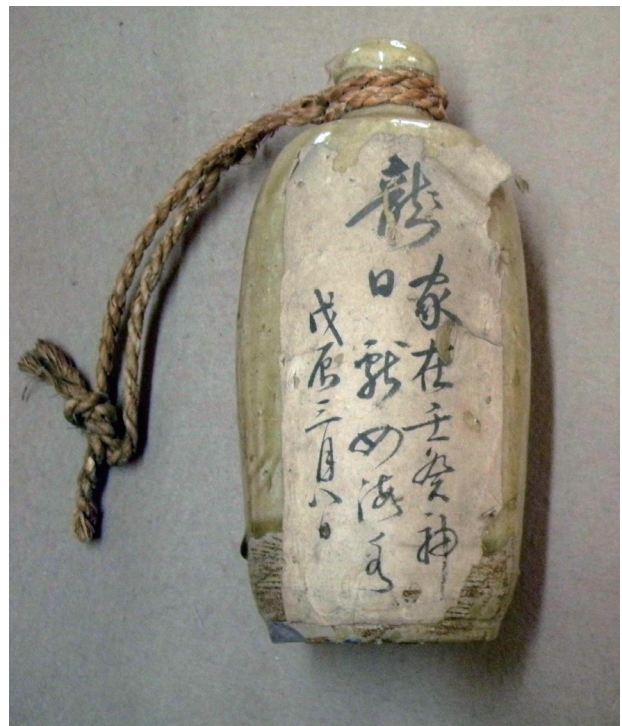 龍
家在壬癸神
日獻四海水
戊辰三月八日